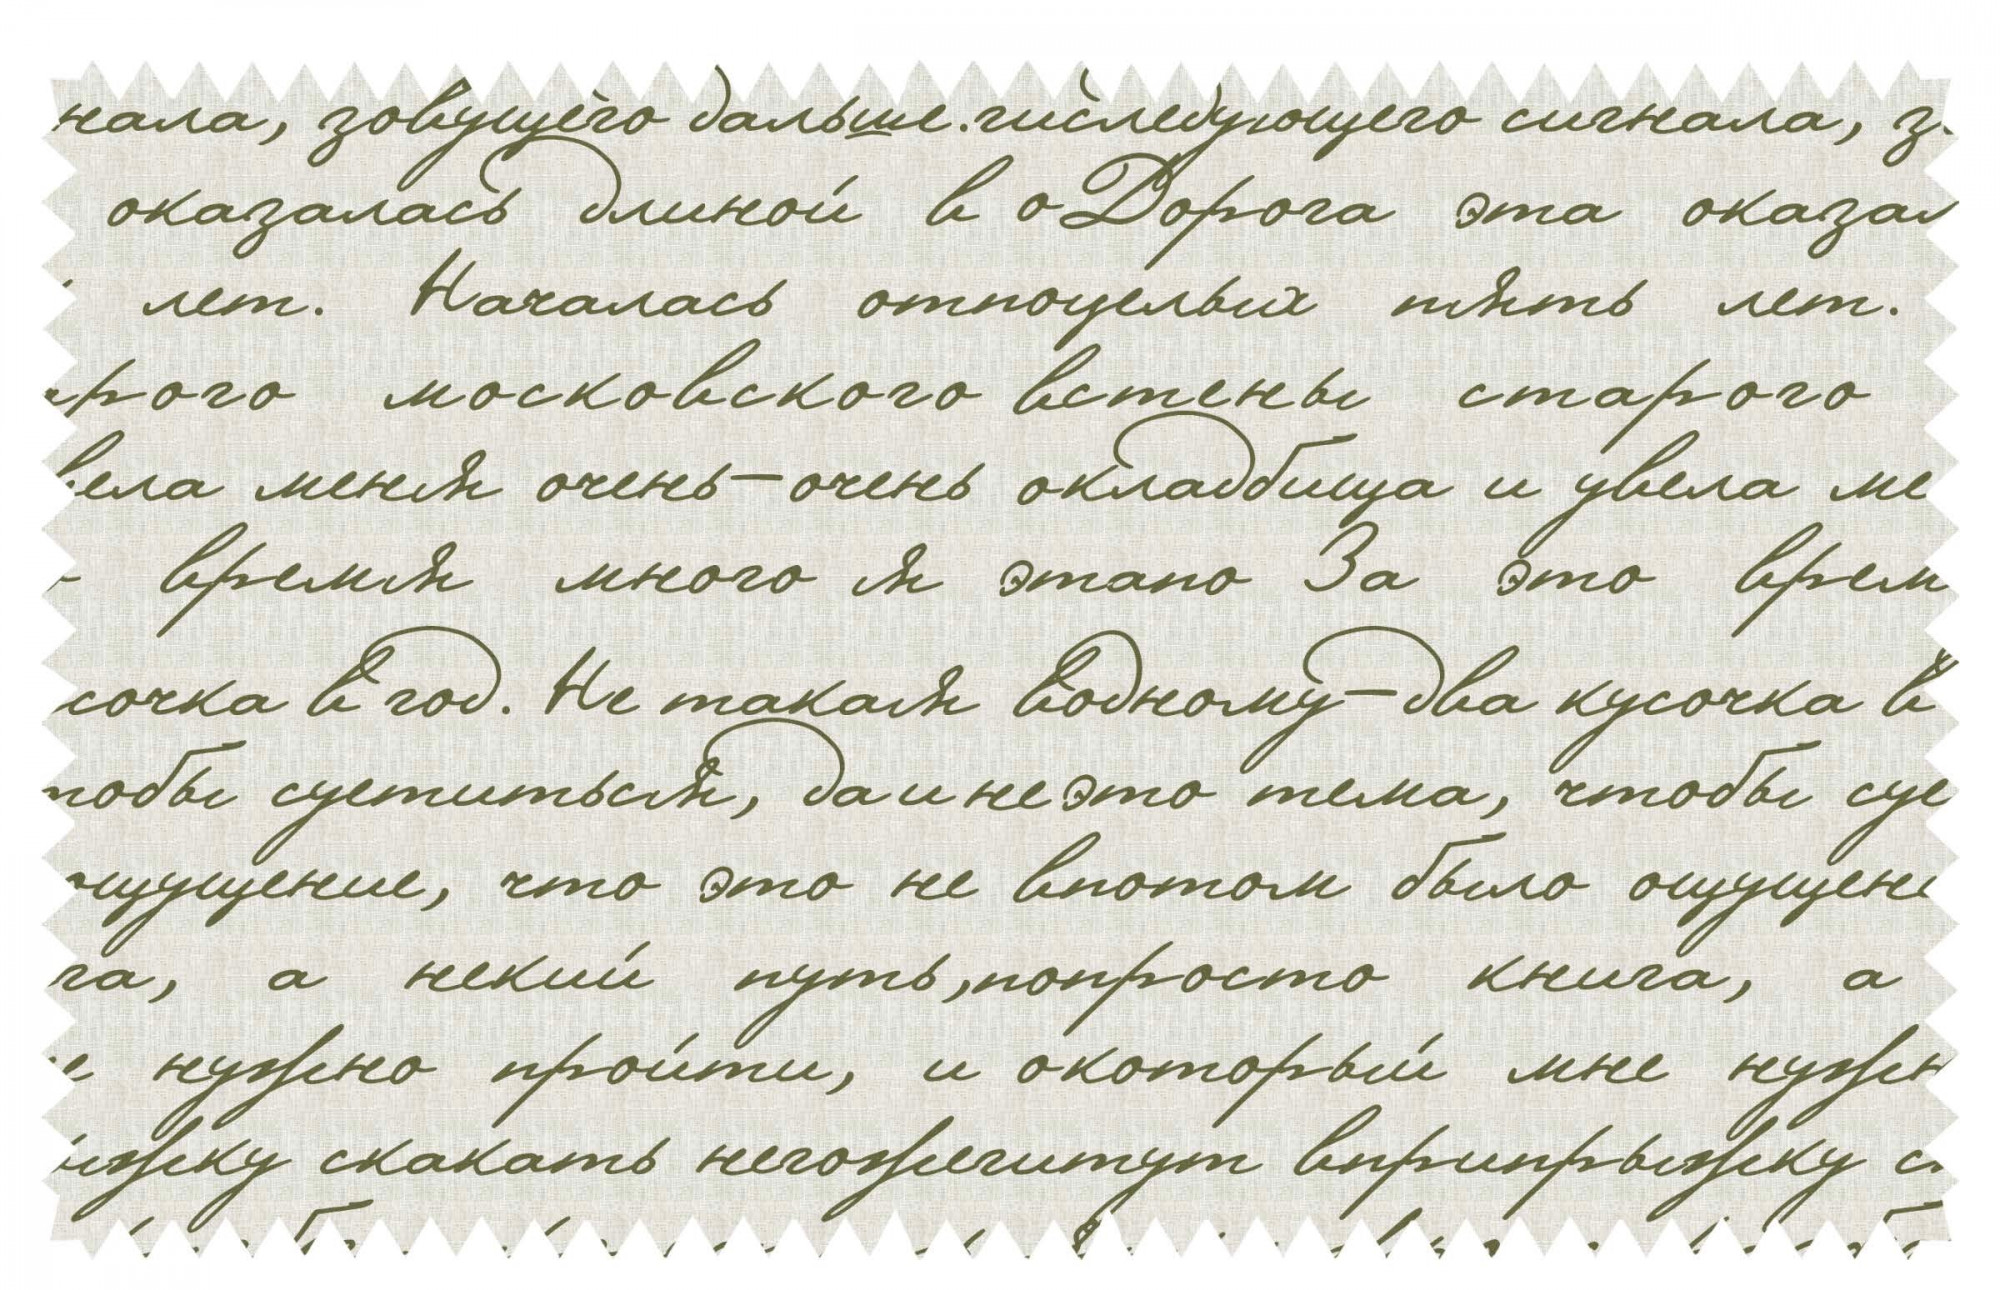 нала, зовущего дальше. следующего сигнала, з
оказалась длиной в о Дорога эта оказал
лет. Началась от поцелых пять лет.
рого московского встены старого
вела меня очень-очень окладбища и увела ме
время много я этапо За это врем
сочка в год. Не такая водному-два кусочка в
тобы суетиться, да и не это тема, чтобы суе
ощущение, что это не впотом было ощущени
га, а некий путь, попросто книга, а
е нужно пройти, и окоторый мне нужн
ыжку скакать негоже вприпрыжку с